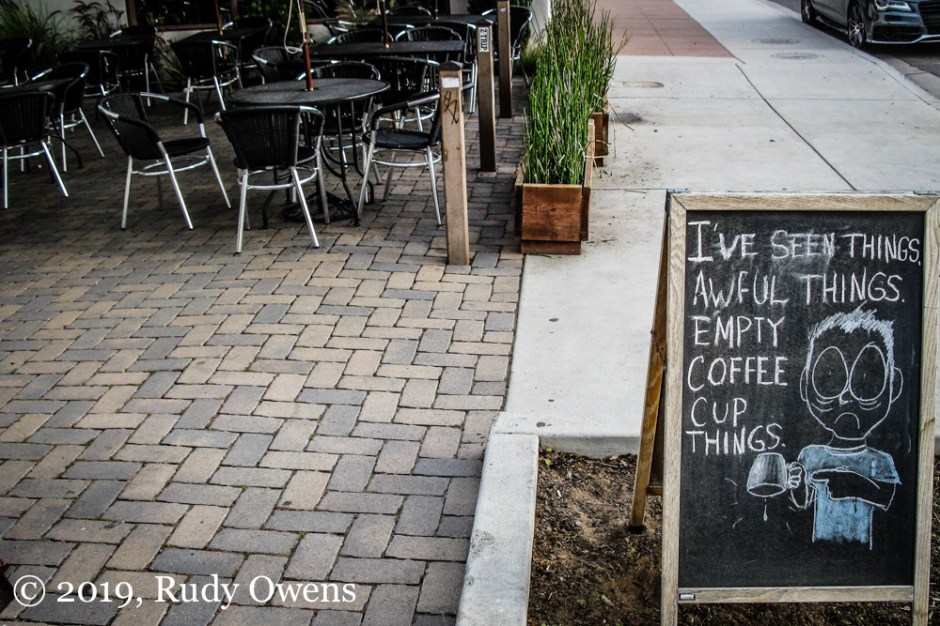 I'VE SEEN THINGS,
AWFUL THINGS.
EMPTY
COFFEE
CUP
THINGS.
© 2019, Rudy Owens